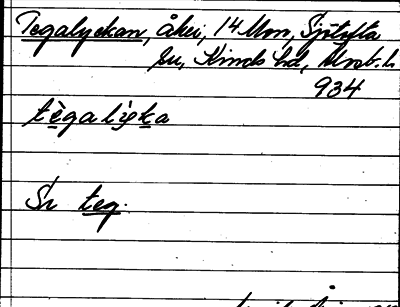 Tegalyckan, åker, 14 Mon, Sjötofta
sn, Kinds hd, Älvsb. l.
934
tègalyka
Sr teg.